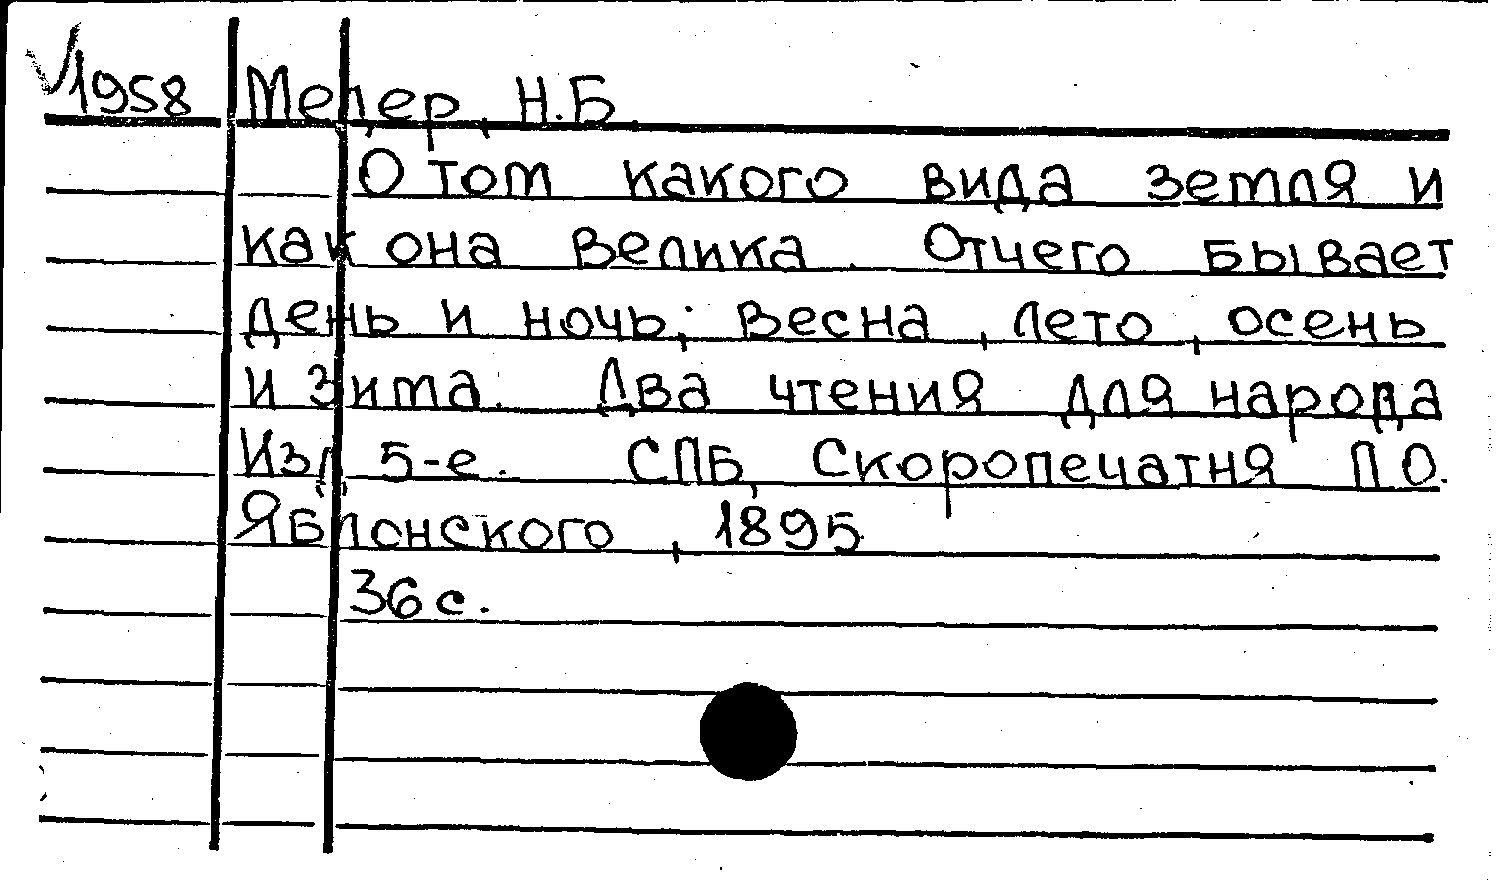 1958 Мецер, Н.Б.
О том какого вида земля и
как она велика. Отчего бывает
день и ночь; весна, лето, осень
и зима. Два чтения для народа
Изд. 5-е. СПБ, Скоропечатня П.О.
Яблонского, 1895
36 с.